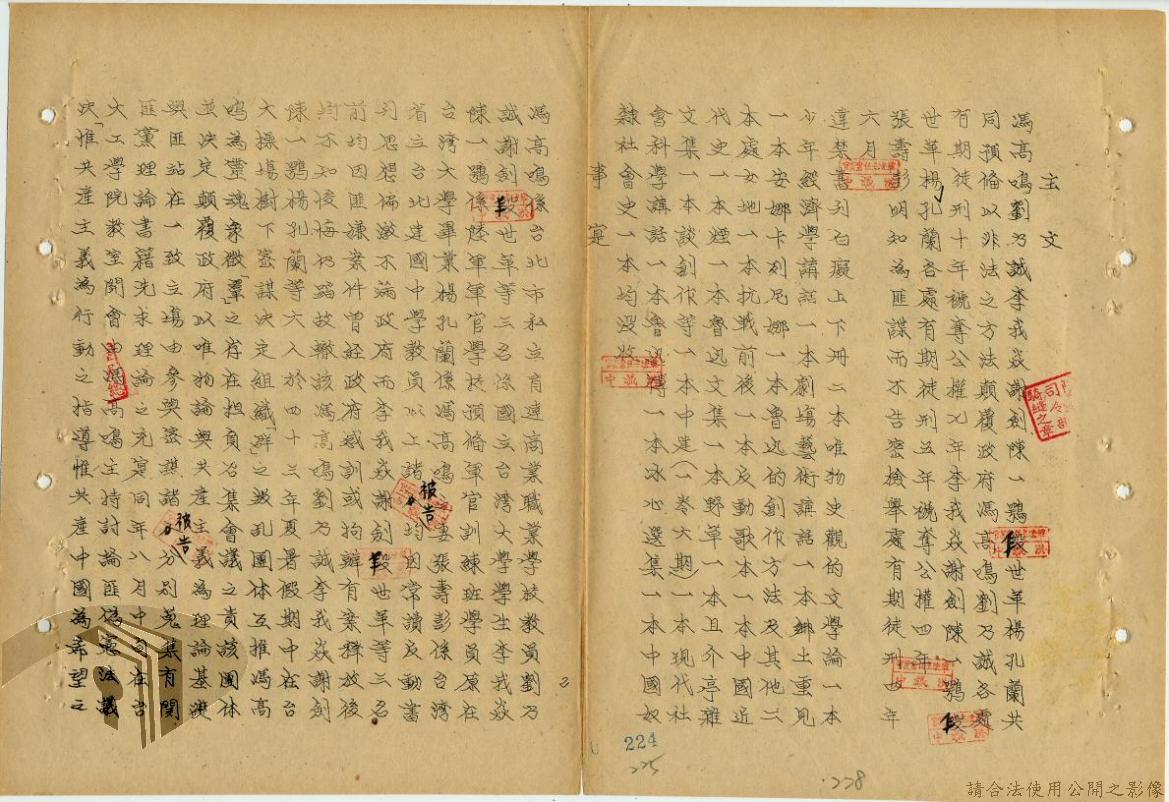 主文
馮高鳴劉乃誠李我焱謝劍陳一鶚段世革楊孔蘭共
同預備以非法之方法顛覆政府馮高鳴劉乃誠各處
有期徒刑十年褫奪公權七年李我焱謝劍陳一鶚段
世革楊孔蘭各處有期徒刑五年褫奪公權四年
張壽彭明知為匪諜而不告密檢舉處有期徒刑四年
六月
違禁書刊白癡上下冊二本唯物史觀的文學論一本
少年經濟學講話一本劇場藝術講話一本鄉土重見
一本安娜卡列尼娜一本魯迅的創作方法及其他二
本處女地一本抗戰前後一本反動歌本一本中國近
代史一本煙一本魯迅文集一本野草一本且介亭雜
文集一本談創作等一本中建(一卷六期)一本現代社
會科學講話一本魯迅傳一本冰心選集一本中國奴
隸社會史一本均沒收
事實
馮高鳴係台北市私立育達高業職業學校教員劉乃
誠謝劍段世革等三名係國立台灣大學學生李我焱
陳一鶚係陸軍軍官學校預備軍官訓練班學員原在
台灣大學畢業楊孔蘭係馮高鳴之妻張壽彭係台灣
省立台北建國中學教員以上諸被告均因常讀反動書
刊思想偏激不滿政府而李我焱謝劍段世革等三名
前均因匪嫌案件曾經政府感訓或拘辦有案釋放後
均不知悛悔仍蹈故轍該馮高鳴劉乃誠李我焱謝劍
陳一鶚楊孔蘭等六人於四十三年夏暑假期中在台
大操場樹下密謀決定組織「群」之叛亂團体互推馮高
鳴為靈魂象徵「群」之存在担負召集會議之責該團体
並決定顛覆政府以唯物論與共產主義為理論基礎
與匪站在一致立場由參與密謀諸被告分別蒐集有關
匪黨理論書籍先求理論之充實同年八月中旬在台
大工學院教室開會由馮高鳴主持討論匪偽憲法議
決「惟共產主義為行動之指導惟共產中國為希望之
224
225
228
2
請合法使用公開之影像